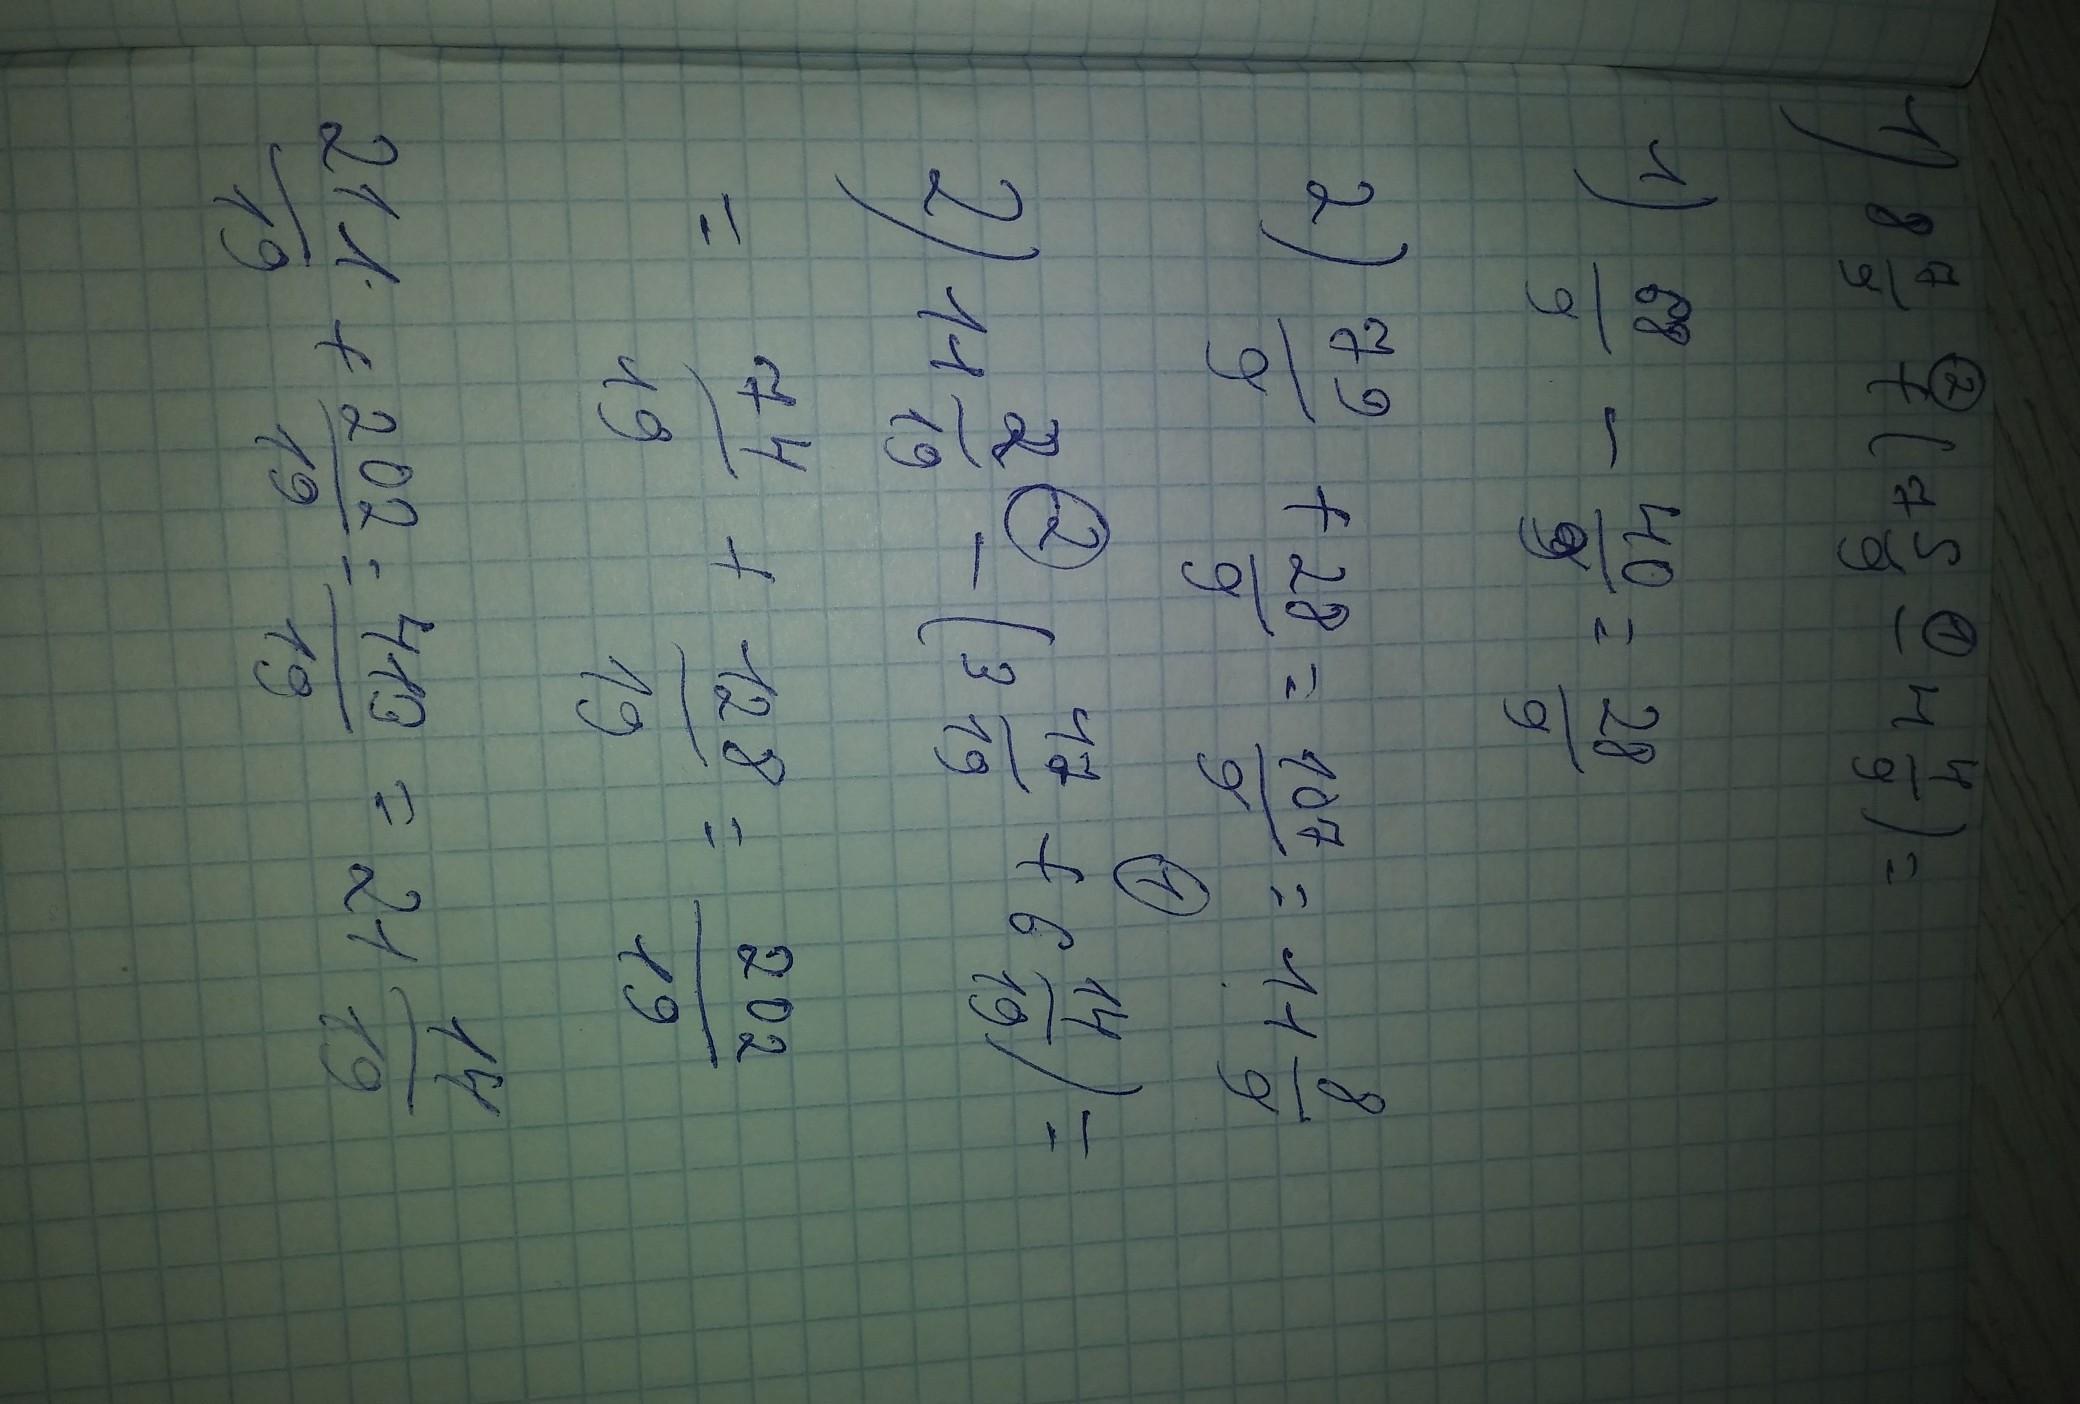 1) 8 7/9 ② + (7 5/9 ① - 4 4/9) =
1) 68/9 - 40/9 = 28/9
2) 79/9 + 28/9 = 107/9 = 11 8/9
2) 11 2/19 ② - (3 17/19 + ① 6 14/19) =
= 74/19 + 128/19 = 202/19
211/19 + 202/19 = 413/19 = 21 14/19